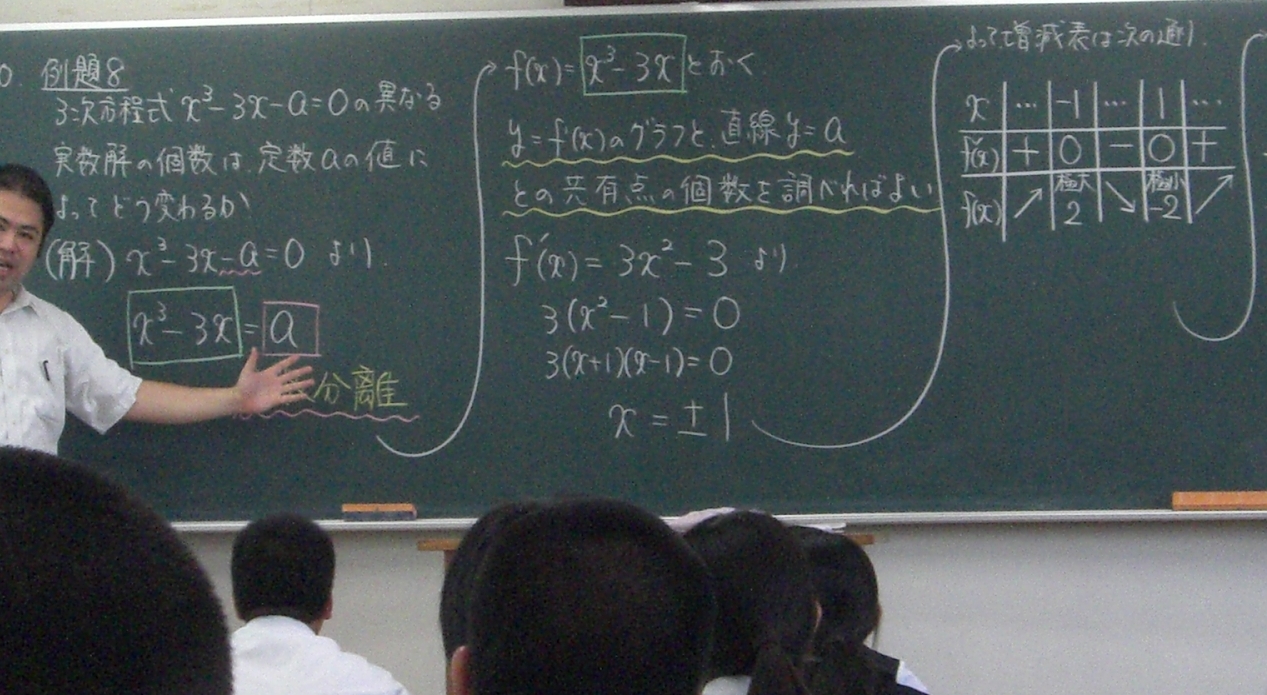 例題8
3次方程式 x³-3x-a=0の異なる
実数解の個数は、定数aの値に
よってどう変わるか
(解) x³-3x-a=0 より、
x³-3x = a
分離
f(x)= x³-3x とおく
y=f(x)のグラフと、直線y=a
との共有点の個数を調べればよい
f'(x) = 3x²-3 より、
3(x²-1)=0
3(x+1)(x-1)=0
x = ±1
よって増減表は次の通り.
x … -1 … 1 …
f'(x) + 0 - 0 +
f(x) ↗ 極大 2 ↘ 極小 -2 ↗